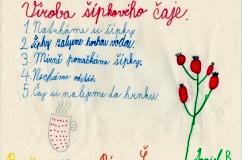 Víroba šípkového čaje.
1. Natrháme si šípky.
2. Šípky zalijeme horkou vodou.
3. Mírně pomačkáme šípky.
4. Necháme
5. Čaj si nalijeme do hrnku.